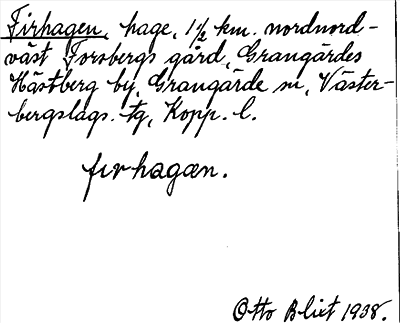 Firhagen, hage, 1½ km. nordnord-
väst Forsbergs gård, Grangärdes
Hästberg by, Grangärde sn, Väster-
bergslags. tg, Kopp. l.
fırhagæn.
Otto Blixt 1938.